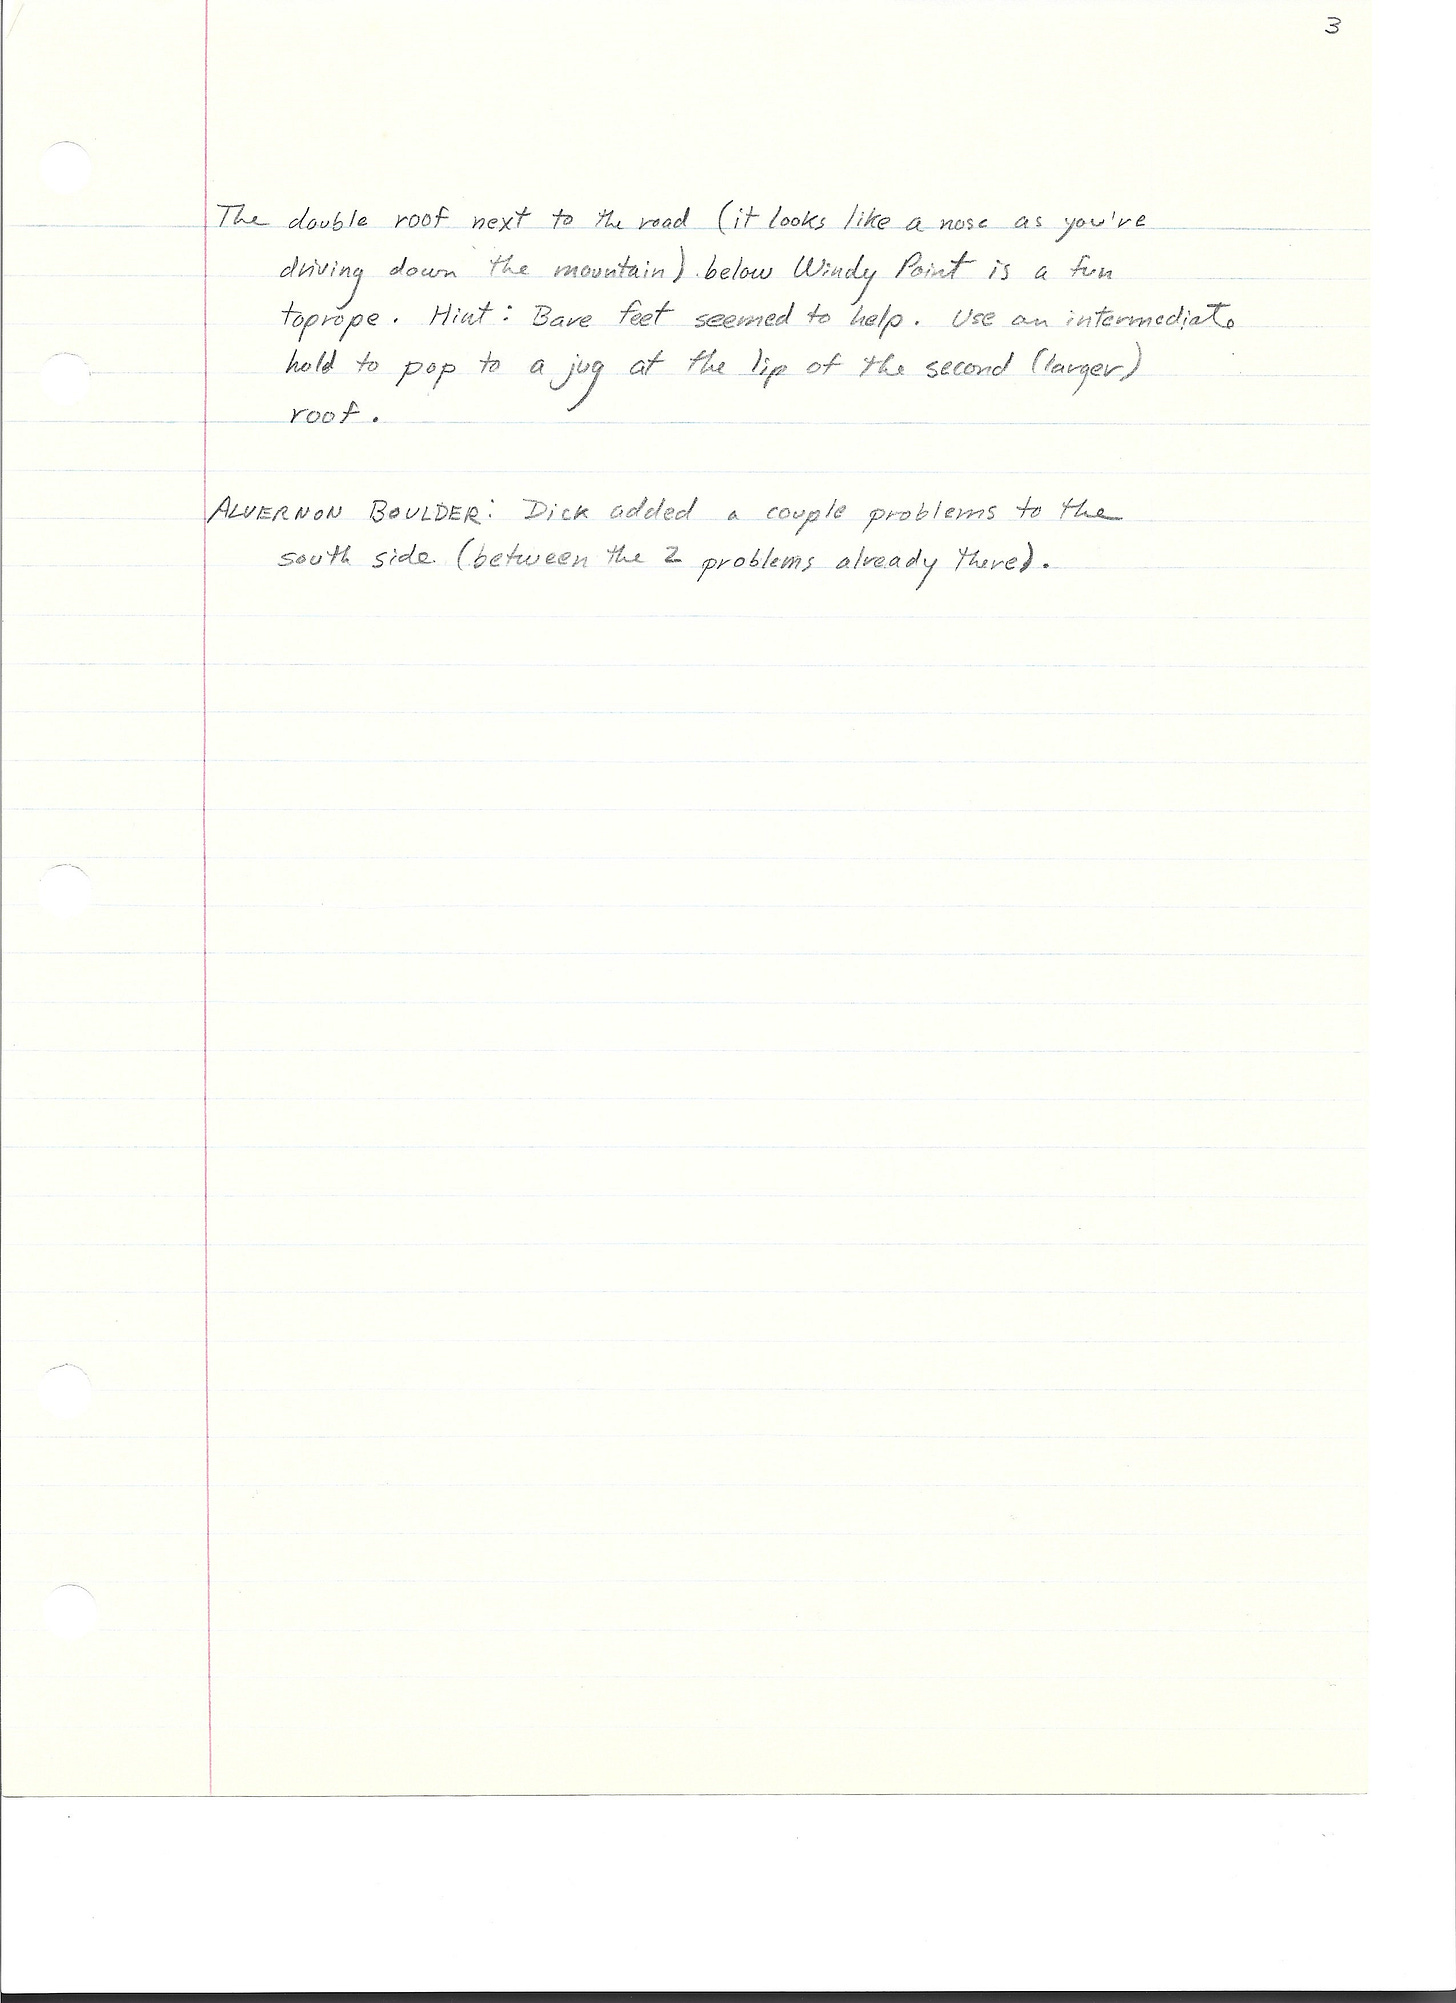 3
The double roof next to the road (it looks like a nose as you're
driving down the mountain) below Windy Point is a fun
toprope. Hint: Bare feet seemed to help. Use an intermediate
hold to pop to a jug at the lip of the second (larger)
roof.
ALVERNON BOULDER: Dick added a couple problems to the
south side (between the 2 problems already there).